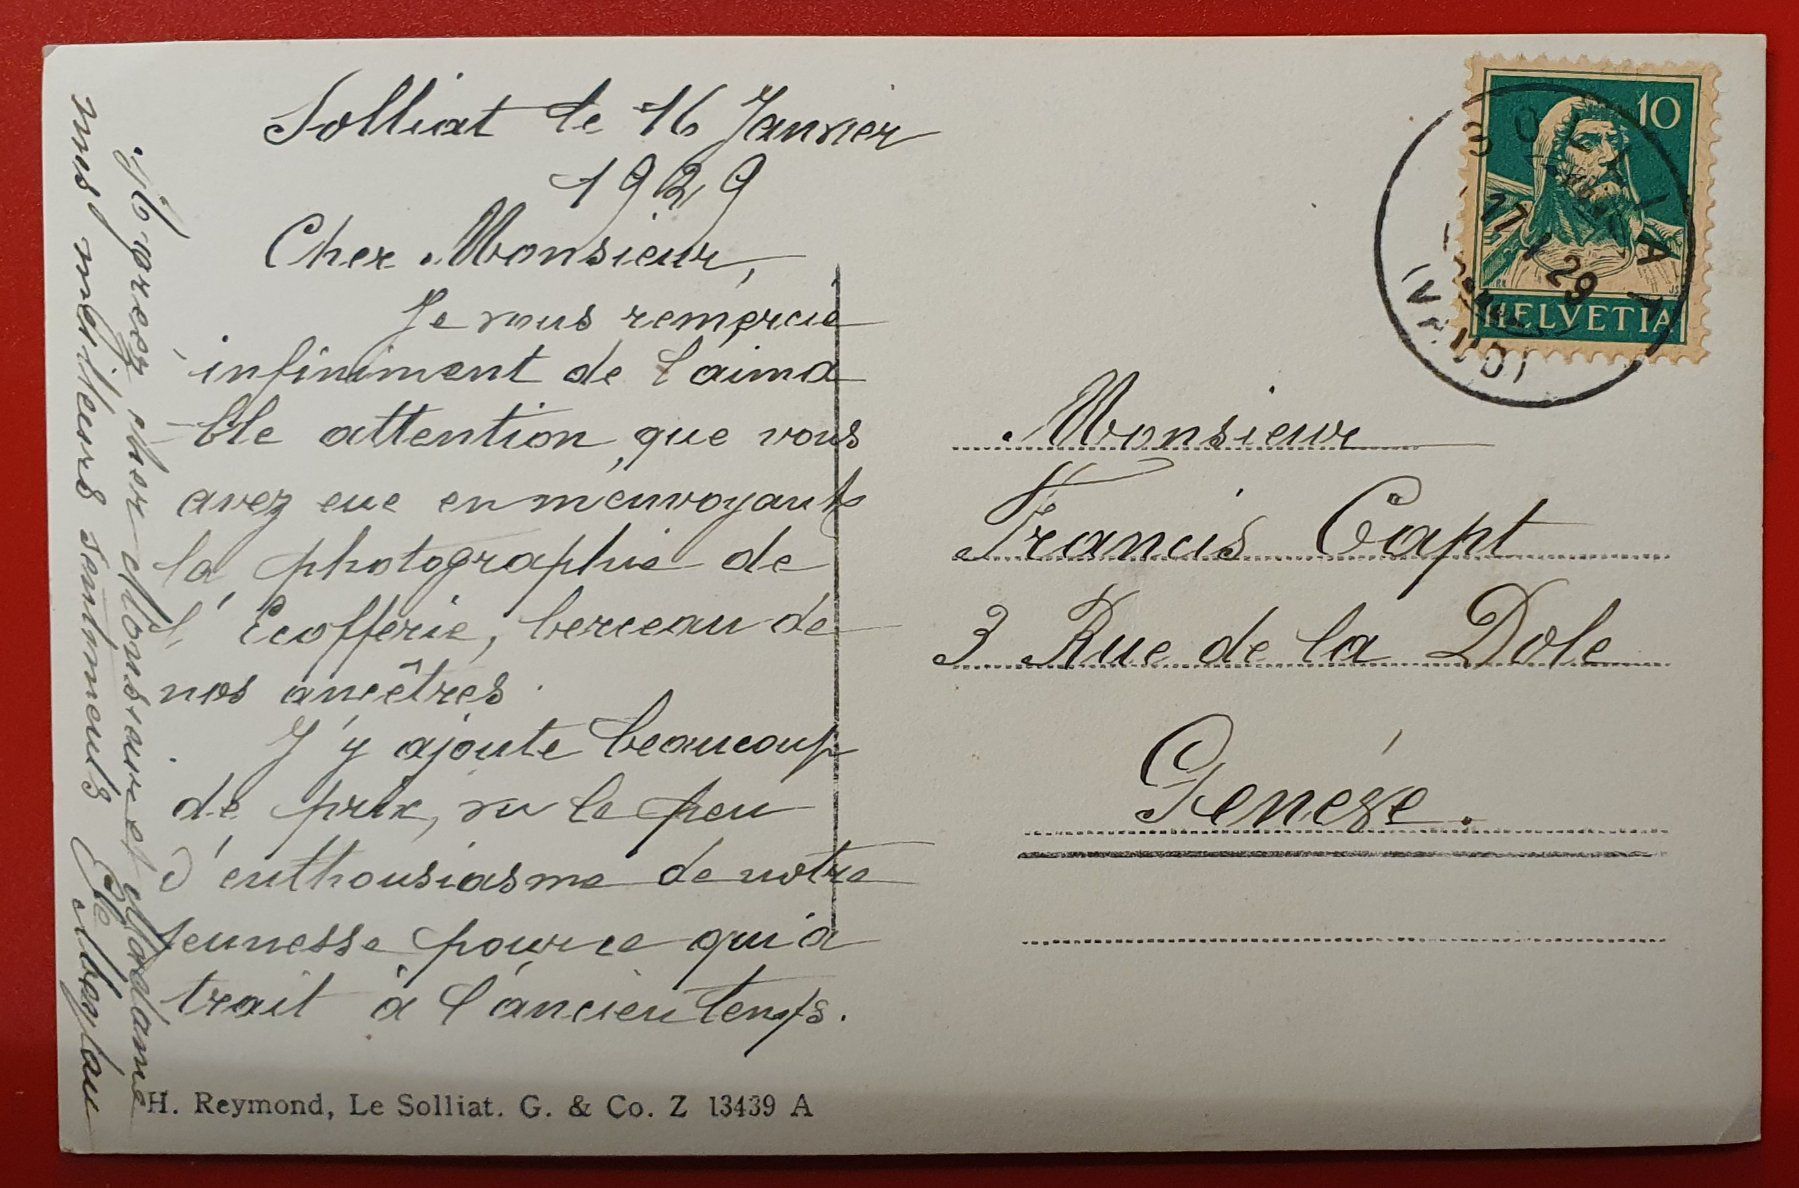 Solliat le 16 Janvier
1929
Cher Monsieur,
Je vous remercie
infiniment de l'aima
ble attention que vous
avez eue en m'envoyant
la photographie de
l'Ecofferie, berceau de
nos ancêtres.
J'y ajoute beaucoup
de prix, vu le peu
d'enthousiasme de notre
jeunesse pour ce qui a
trait à l'ancien temps.
Agréez cher Monsieur et Madame
mes meilleurs sentiments
H. Reymond, Le Solliat. G. & Co. Z 13439 A
10
HELVETIA
SOLLIAT
17. I. 29
(VAUD)
Monsieur
Francis Capt
3 Rue de la Dole
Genève.